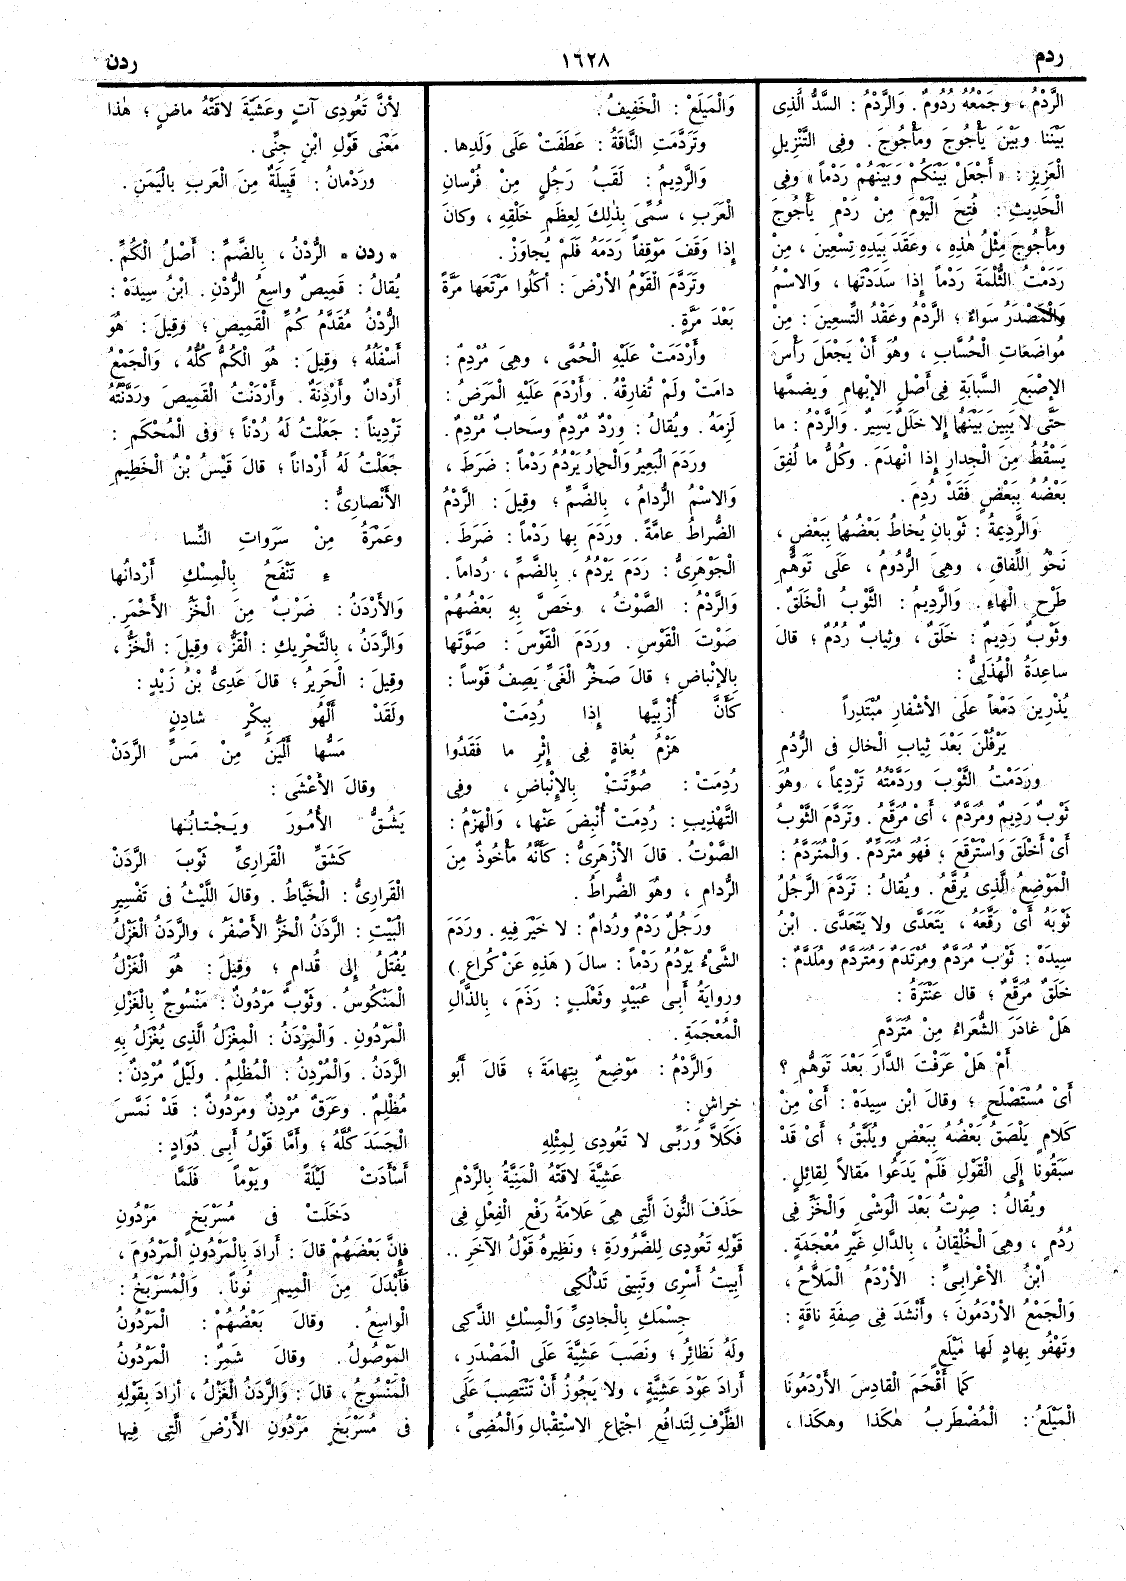 ردم
١٦٢٨
ردن
الرَّدْمُ ، وجَمْعُهُ رُدُومٌ . وَالرَّدْمُ : السَّدُّ الَّذِى
بَيْنَنا وبَيْنَ يَأْجُوجَ ومَأْجُوجَ . وفِى التَّنْزِيلِ
الْعَزِيزِ : « أَجْعَلْ بَيْنَكُمْ وَبَيْنَهُمْ رَدْماً » وفِى
الْحَدِيثِ : فُتِحَ الْيَوْمَ مِنْ رَدْمِ يَأْجُوجَ
ومَأْجُوجَ مِثْلُ هٰذِهِ ، وعَقَدَ بِيَدِهِ تِسْعِينَ ، مِنْ
رَدَمْتُ الثُّلْمَةَ رَدْماً إذا سَدَدْتَها ، وَالاسْمُ
وَالْمَصْدَرُ سَواءٌ ؛ الرَّدْمُ وعَقْدُ التِّسعِينَ : مِنْ
مُواضَعاتِ الْحُسَّابِ ، وهُوَ أَنْ يَجْعَلَ رَأْسَ
الإِصْبَعِ السَّبَابَةِ فِى أَصْلِ الإِبْهامِ وَيضُمَّها
حَتَّى لا يَبِينَ بَيْنَهُما إلا خَلَلٌ يَسِيرٌ . وَالرَّدْمُ : ما
يَسْقُطُ مِنَ الْجِدارِ إذا انْهدَمَ . وكُلُّ ما لُفِقَ
بَعْضُهُ بِبَعْضٍ فَقَدْ رُدِمَ .
وَالرَّدِيمَةُ : ثَوْبانِ يُخاطُ بَعْضُهُما بِبَعْضٍ ،
نَحْوُ اللِّفاقِ ، وهِىَ الرُّدُومُ ، عَلَى تَوَهُّمِ
طَرْحِ الْهاءِ . وَالرَّدِيمُ : الثَّوْبُ الْخَلَقُ .
وثَوْبٌ رَدِيمٌ : خَلَقٌ ، وثِيابٌ رُدُمٌ ؛ قالَ
ساعِدَةُ الْهُذَلِىُّ :
يُذْرِينَ دَمْعاً عَلَى الأَشْفارِ مُبْتَدِراً
يَرْفُلْنَ بَعْدَ ثِيابِ الْخالِ فى الرُّدُمِ
ورَدَمْتُ الثَّوْبَ وَرَدَّمْتُهُ تَرْدِيماً ، وهُوَ
ثَوْبٌ رَدِيمٌ ومُرَدَّمٌ ، أَىْ مُرَقَّعٌ . وتَرَدَّمَ الثَّوْبُ
أَىْ أَخْلَقَ وَاسْتَرْقَعَ ؛ فَهُوَ مُتَرَدِّمٌ . وَالْمُتَرَدَّمُ :
الْمَوْضِعُ الَّذِى يُرقَّعُ . ويُقالُ : تَرَدَّمَ الرَّجُلُ
ثَوْبَهُ أَىْ رَقَّعَهُ ، يَتَعَدَّى ولا يَتَعَدَّى . ابْنُ
سِيدَهْ : ثَوْبٌ مُرَدَّمٌ ومُرْتَدَمٌ ومُتَرَدَّمٌ ومُلَدَّمٌ :
خَلَقٌ مُرَقَّعٌ ؛ قال عَنْتَرَةُ :
هَلْ غادَرَ الشُّعَراءُ مِنْ مُتَرَدَّمِ
أَمْ هَلْ عَرَفْتَ الدَّارَ بَعْدَ تَوَهُّمِ ؟
أَىْ مُسْتَصْلَحٍ ؛ وقالَ ابْنُ سِيدَهْ : أَىْ مِنْ
كَلامٍ يَلْصَقُ بَعْضُهُ بِبَعْضٍ ويُلَبَّقُ ؛ أَىْ قَدْ
سَبَقُونا إلَى الْقَوْلِ فَلَمْ يَدَعُوا مَقالاً لِقائِلٍ .
ويُقالُ : صِرْتُ بَعْدَ الْوَشْىِ وَالْخَزِّ فِى
رُدُمٍ ، وهِىَ الْخُلْقانُ ، بِالدَّالِ غَيْرِ مُعْجَمَةٍ .
ابْنُ الأَعْرابِىِّ : الأَرْدَمُ الْمَلاَّحُ ،
وَالْجَمْعُ الأَرْدَمُونَ ؛ وأَنْشَدَ فِى صِفَةِ ناقَةٍ :
وتَهْفُو بِهادٍ لَها مَيْلَعٍ
كَما أَقْحَمَ الْقادِسَ الأَرْدَمُونَا
الْمَيْلَعُ : الْمُضْطَرِبُ هٰكَذا وهٰكَذا ،
وَالْمَيلَعُ : الْخَفِيفُ .
وتَرَدَّمَتِ النَّاقَةُ : عَطَفَتْ عَلَى وَلَدِها .
وَالرَّدِيمُ : لَقَبُ رَجُلٍ مِنْ فُرْسانِ
الْعَرَبِ ، سُمِّىَ بِذٰلِكَ لِعِظَمِ خَلْقِهِ ، وكانَ
إذا وَقَفَ مَوْقِفاً رَدَمَهُ فَلَمْ يُجاوَزْ .
وتَرَدَّمَ الْقَوْمُ الأَرْضَ : أَكَلُوا مَرْتَعَها مَرَّةً
بَعْدَ مَرَّةٍ .
وأَرْدَمَتْ عَلَيْهِ الْحُمَّى ، وهِىَ مُرْدِمٌ :
دامَتْ ولَمْ تُفارِقْهُ . وأَرْدَمَ عَلَيْهِ الْمَرَضُ :
لَزِمَهُ . ويُقالُ : وِرْدٌ مُرْدِمٌ وسَحابٌ مُرْدِمٌ .
ورَدَمَ الْبَعِيرُ وَالْحِمارُ يَرْدُمُ رَدْماً : ضَرَطَ ،
وَالاسْمُ الرُّدامُ ، بِالضَّمِّ ؛ وقِيلَ : الرَّدْمُ
الضُّراطُ عامَّةً . ورَدَمَ بِها رَدْماً : ضَرَطَ .
الْجَوْهَرِىُّ : رَدَمَ يَرْدُمُ ، بِالضَّمِّ ، رُداماً .
وَالرَّدْمُ : الصَّوْتُ ، وخَصَّ بِهِ بَعْضُهُمْ
صَوْتَ الْقَوْسِ . ورَدَمَ الْقَوْسَ : صَوَّتَها
بِالإنْباضِ ؛ قالَ صَخْرُ الْغَىِّ يَصِفُ قَوْساً :
كَأَنَّ أُزْبِيَّها إذا رُدِمَتْ
هَزْمُ بُغاةٍ فِى إثْرِ ما فَقَدُوا
رُدِمَتْ : صُوِّتَتْ بِالإنْباضِ ، وفِى
التَّهْذِيبِ : رُدِمَتْ أُنْبِضَ عَنْها ، وَالْهَزْمُ :
الصَّوْتُ . قالَ الأَزْهَرِىُّ : كَأَنَّهُ مَأْخُوذٌ مِنَ
الرُّدامِ ، وهُوَ الضُّراطُ .
ورَجُلٌ رَدْمٌ ورُدامٌ : لا خَيْرَ فِيهِ . ورَدَمَ
الشَّىْءُ يَرْدُمُ رَدْماً : سالَ ( هَذِهِ عَنْ كُراعٍ )
ورِوايَةُ أَبِى عُبَيْدٍ وثَعْلَبٍ : رَذَمَ ، بِالذَّالِ
الْمُعْجَمَةِ .
وَالرَّدْمُ : مَوْضِعٌ بِتِهامَةَ ؛ قَالَ أَبُو
خِراشٍ :
فَكَلاَّ وَرَبِّى لا تَعُودِى لِمِثْلِهِ
عَشِيَّةَ لاقَتْهُ الْمَنِيَّةُ بِالرَّدْمِ
حَذَفَ النُّونَ الَّتِى هِىَ عَلامَةُ رَفْعِ الْفِعْلِ فِى
قَوْلِهِ تَعُودِى لِلضَّرُورَةِ ؛ ونَظِيرُهُ قَوْلُ الآخَرِ ..
أَبِيتُ أَسْرِى وتَبِيتِى تَدْلُكِى
جِسْمَكِ بِالْجادِىِّ وَالْمِسْكِ الذَّكِى
ولَهُ نَظائِرُ ؛ ونَصَبَ عَشِيَّةَ عَلَى الْمَصْدَرِ ،
أَرادَ عَوْدَ عَشِيَّةٍ ، ولا يَجُوزُ أَنْ تَنْتَصِبَ عَلَى
الظَّرْفِ لِتَدافُعِ اجْتِماعِ الاسْتِقْبالِ وَالْمُضِىِّ ،
لأَنَّ تَعُودِى آتٍ وعَشِيَّةَ لاقَتْهُ ماضٍ ؛ هٰذا
مَعْنَى قَوْلِ ابْنِ جِنِّى .
ورَدْمَانُ : قَبِيلَةٌ مِنَ الْعَربِ بِالْيَمَنِ .
• ردن • الرُّدْنُ ، بِالضَّمِّ : أَصْلُ الْكُمِّ .
يُقالُ : قَمِيصٌ واسِعُ الرُّدْنِ . ابْنُ سِيدَهْ :
الرُّدْنُ مُقَدَّمُ كُمِّ الْقَمِيصِ ؛ وقِيلَ : هُوَ
أَسْفَلُهُ ؛ وقِيلَ : هُوَ الْكُمُّ كُلُّهُ ، وَالْجَمْعُ
أَرْدانٌ وأَرْدِنَةٌ . وأَرْدَنْتُ الْقَمِيصَ ورَدَّنْتُهُ
تَرْدِيناً : جَعَلْتُ لَهُ رُدْناً ؛ وفى الْمُحْكَمِ :
جَعَلْتُ لَهُ أَرْداناً ؛ قالَ قَيْسُ بْنُ الْخَطِيمِ
الأَنْصارِىُّ :
وعَمْرَةُ مِنْ سَرَواتِ النِّسا
ءِ تَنْفَحُ بِالْمِسْكِ أَرْدانُها
وَالأَرْدَنُ : ضَرْبٌ مِنَ الْخَزِّ الأَحْمَرِ .
وَالرَّدَنُ ، بِالتَّحْرِيكِ : الْقَزُّ ، وقِيلَ : الْخَزُّ ،
وقِيلَ : الْحَرِيرُ ؛ قالَ عَدِىُّ بْنُ زَيْدٍ :
ولَقَدْ أَلْهُو بِبِكْرٍ شادِنٍ
مَسُّها أَلْيَنُ مِنْ مَسِّ الرَّدَنْ
وقالَ الأَعْشَى :
يَشُقُّ الأُمُورَ ويَجْتابُها
كَشَقِّ الْقَرارِىِّ ثَوْبَ الرَّدَنْ
الْقَرارِىُّ : الْخَيَّاطُ . وقالَ اللَّيْثُ فى تَفْسِيرِ
الْبَيْتِ : الرَّدَنُ الْخَزُّ الأَصْفَرُ ، والرَّدَنُ الْغَزْلُ
يُفْتَلُ إلى قُدامٍ ؛ وَقِيلَ : هُوَ الْغَزْلُ
الْمَنْكُوسُ . وثَوْبٌ مَرْدُونٌ : مَنْسُوجٌ بِالْغَزْلِ
الْمَرْدُونِ . وَالْمِرْدَنُ : المِغْزَلُ الَّذِى يُغْزَلُ بِهِ
الرَّدَنُ . وَالْمُرْدِنُ : الْمُظْلِمُ . ولَيْلٌ مُرْدِنٌ :
مُظْلِمٌ . وعَرَقٌ مُرْدِنٌ ومَرْدُونٌ : قَدْ نَمَّسَ
الْجَسَدَ كُلَّهُ ؛ وأَمَّا قَوْلُ أَبِى دُوادٍ :
أَسْأَدَتْ لَيْلَةً ويَوْماً فَلَمَّا
دَخَلَتْ فى مُسَرْبَخٍ مَرْدُونِ
فإِنَّ بَعْضَهُمْ قالَ : أَرادَ بِالْمَرْدُونِ الْمَرْدُومَ ،
فَأَبْدَلَ مِنَ الْمِيمِ نُوناً . وَالْمُسَرْبَخُ :
الْواسِعُ . وقالَ بَعْضُهُمْ : الْمَرْدُونُ
الْمَوْصُولُ . وقالَ شَمِرٌ : الْمَرْدُونُ
الْمَنْسُوجُ ، قالَ : وَالرَّدَنُ الْغَزْلُ ، أرادَ بِقَوْلِهِ
فى مُسَرْبَخٍ مَرْدُونِ الأَرْضَ الَّتِى فِيها